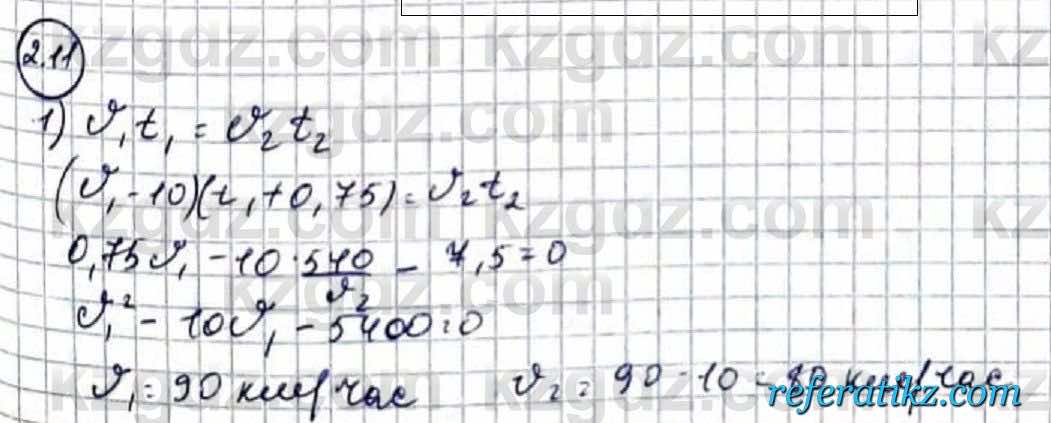 2.11
1) ϑ₁t₁ = ϑ₂t₂
(ϑ₁ - 10)(t₁ + 0,75) = ϑ₂t₂
0,75ϑ₁ - 10 · 540/ϑ₂ - 7,5 = 0
ϑ₁² - 10ϑ₁ - 5400 = 0
ϑ₁ = 90 км/час ϑ₂ = 90 - 10 = 80 км/час
kzgdz.com
referatikz.com